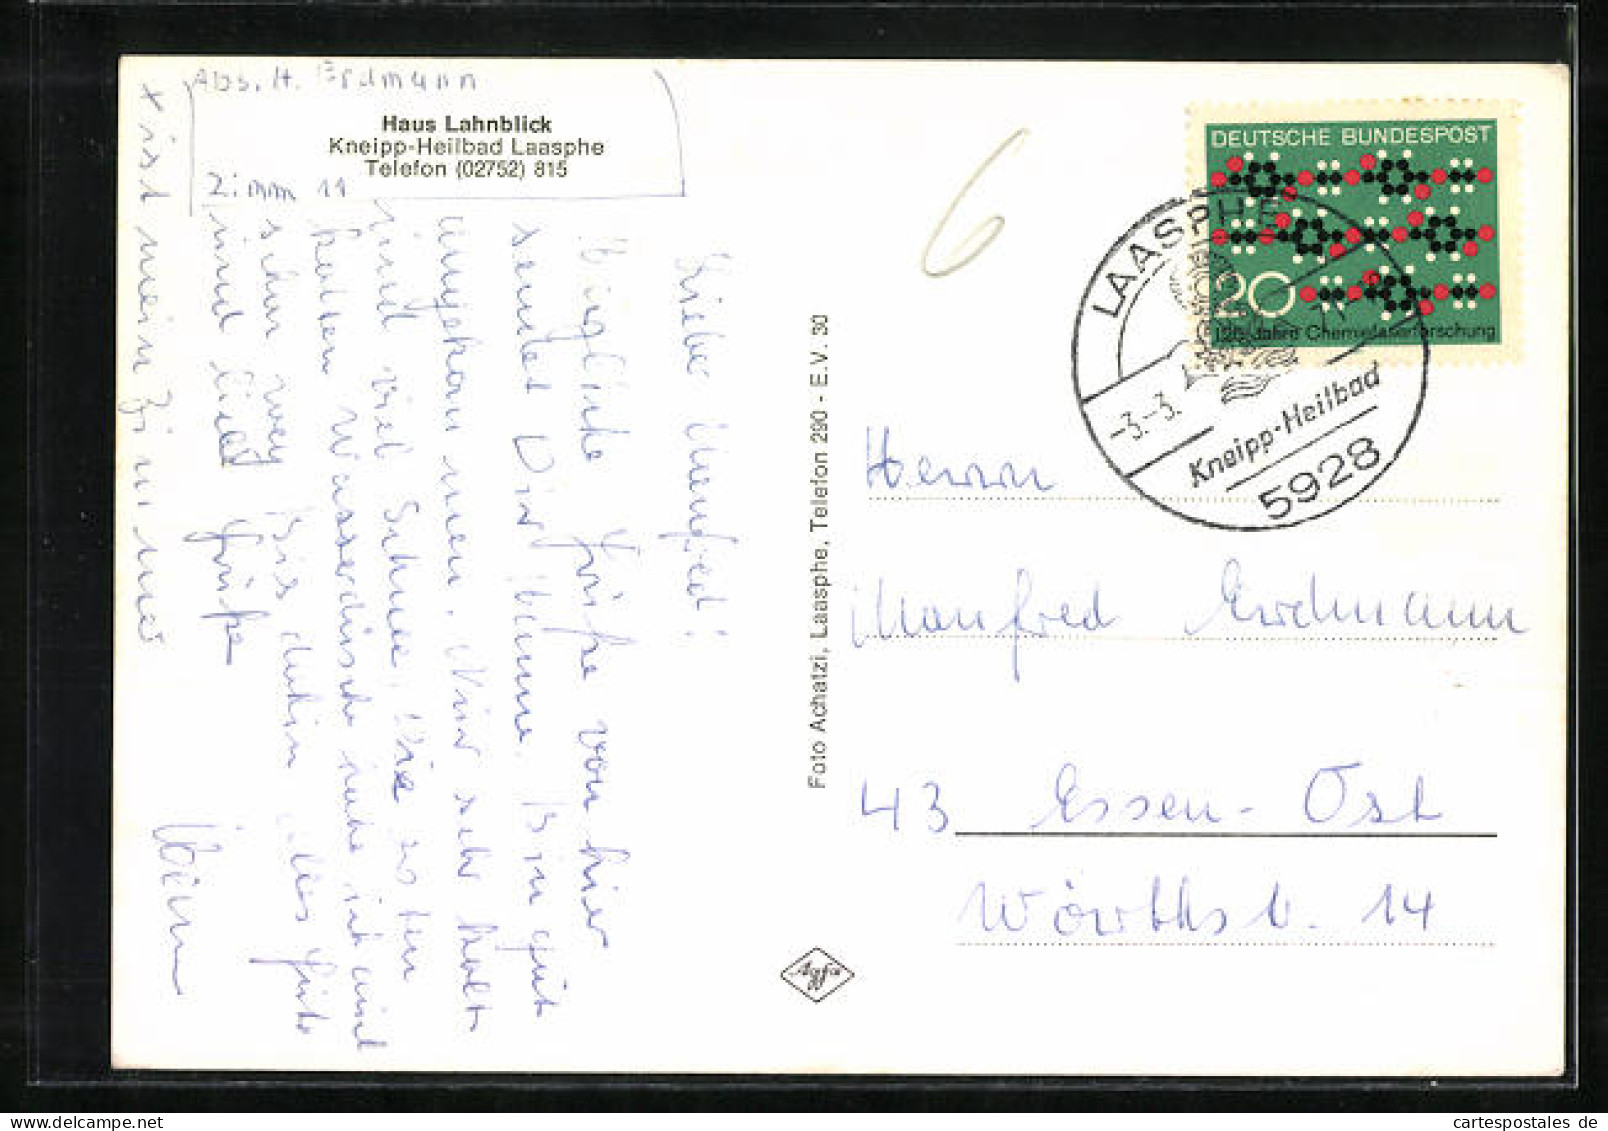 Abs. H. Erdmann
Haus Lahnblick
Kneipp-Heilbad Laasphe
Telefon (02752) 815
Zimm 11
Lieber Manfred!
Herzliche Grüße von hier
sendet Dir Bin gut
angekommen. Hier sehr kalt
und viel Schnee. Die ersten
kalten Wasser habe ich
schon weg Bis dahin alles Gute
und liebe Grüße
x ist mein Zimmer
6
DEUTSCHE BUNDESPOST
20
125 Jahre Chemiefaserforschung
LAASPHE
-3.-3.
Kneipp-Heilbad
5928
Foto Achatzi, Laasphe, Telefon 290 - E.V. 30
Agfa
Herrn
Manfred Erdmann
43 Essen-Ost
Wörthstr. 14
cartespostales de